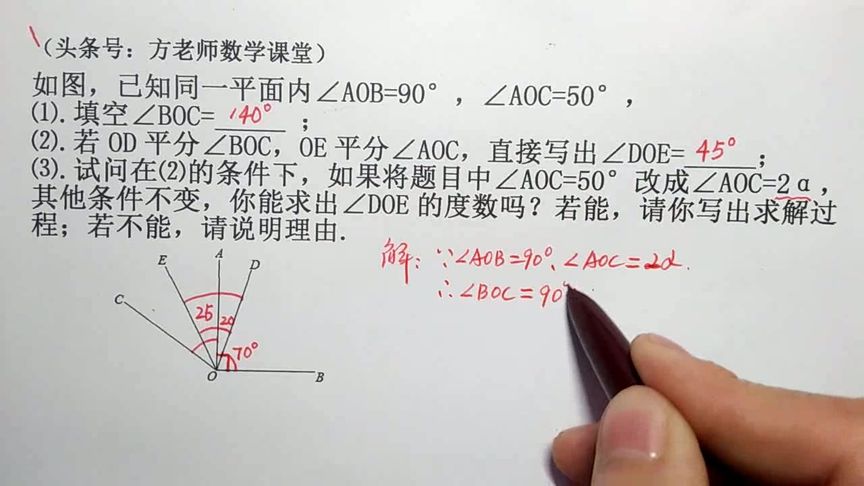 (头条号：方老师数学课堂)
如图，已知同一平面内∠AOB=90°，∠AOC=50°，
⑴.填空∠BOC=140°；
⑵.若OD平分∠BOC，OE平分∠AOC，直接写出∠DOE=45°；
⑶.试问在⑵的条件下，如果将题目中∠AOC=50°改成∠AOC=2α，
其他条件不变，你能求出∠DOE的度数吗？若能，请你写出求解过
程；若不能，请说明理由.
解：∵∠AOB=90°、∠AOC=2α.
∴∠BOC=90°
E A D
C
25 20
70°
O B